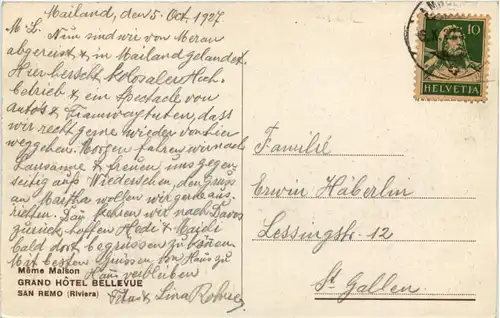 Mailand, den 5. Oct. 1927.
M. L. Nun sind wir von Meran
abgereist & in Mailand gelandet.
Hier herscht kolosaler Hoch-
betrieb & ein Spectacle von
auto's & Tramwaytuten, dass
wir recht gerne wieder von hier
weggehen. Morgen fahren wir nach
Lausanne & freuen uns gegen-
seitig aufs Wiedersehen, den Gruss
an Martha wollen wir gerne aus-
richten. Dann kehren wir nach Davos
zurück, hoffen Hedi & Maidi
bald dort begrüssen zu können.
Mit besten Grüssen von Haus zu
Haus verbleiben
& Lina
Même Maison
GRAND HÔTEL BELLEVUE
SAN REMO (Riviera)
10
HELVETIA
Familie
Erwin Häberlin
Lessingstr. 12
St. Gallen